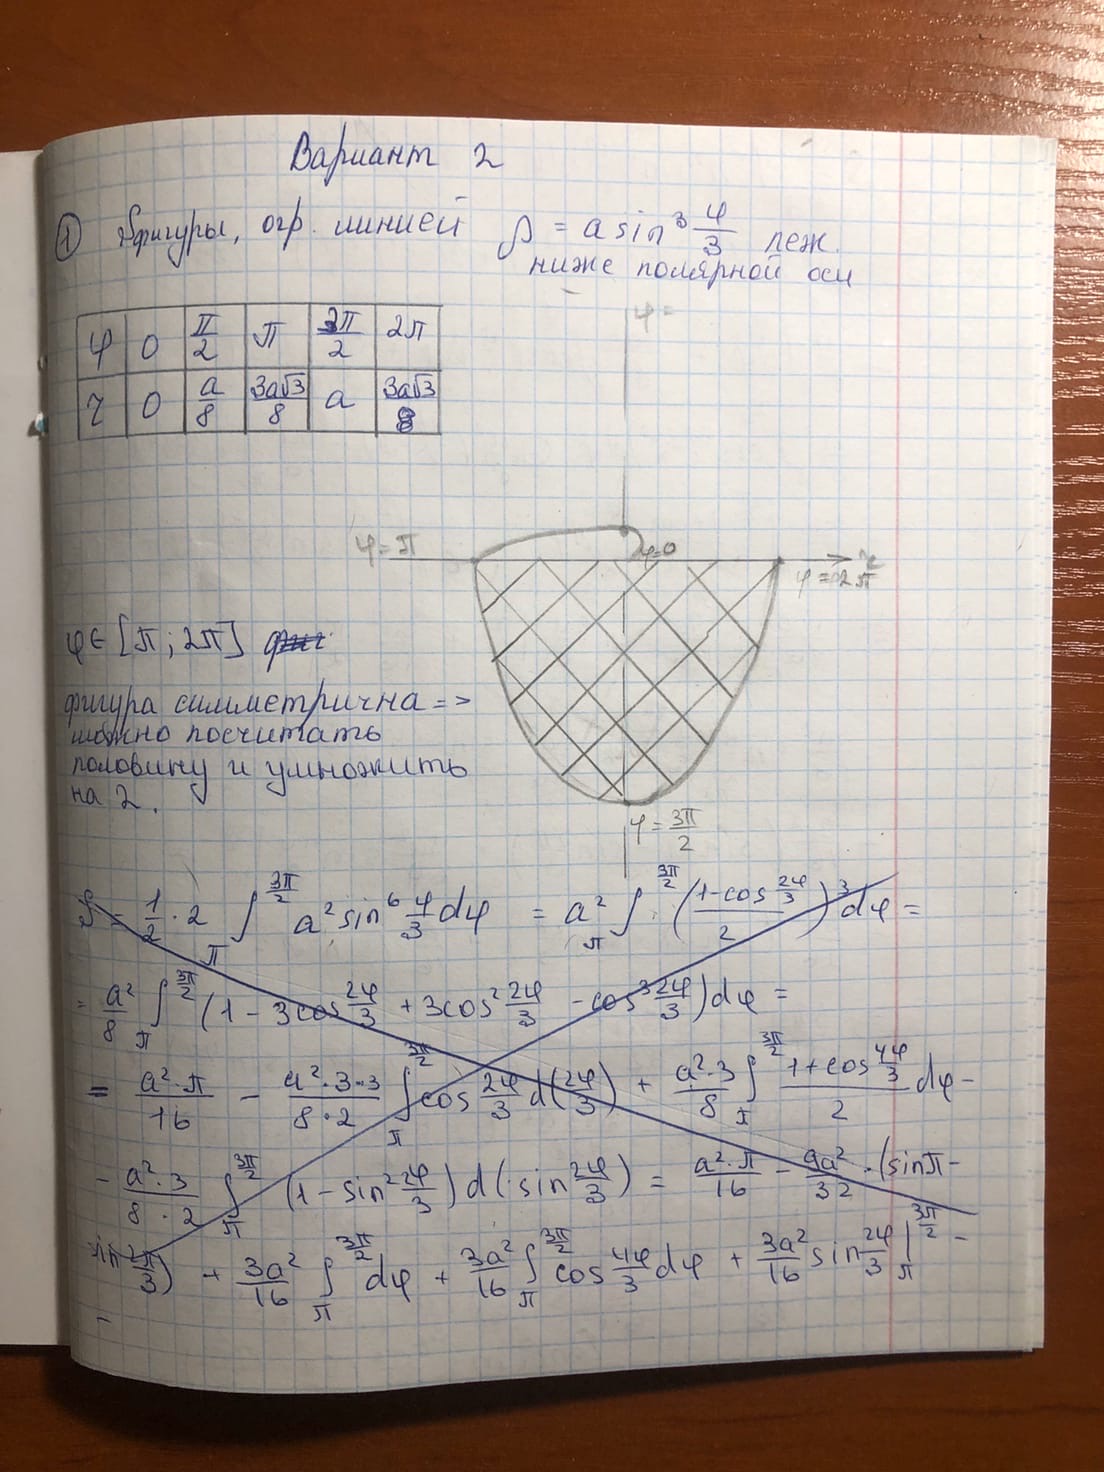 Вариант 2
① Sфигуры, огр. линией ρ = a sin³ φ/3 леж.
ниже полярной оси
φ 0 π/2 π 3π/2 2π
r 0 a/8 3a√3/8 a 3a√3/8
φ =
φ = π
φ=0
φ = 2π
φ = 3π/2
φ ∈ [π; 2π]
фигура симметрична =>
можно посчитать
половину и умножить
на 2.
S = 1/2 · 2 ∫_π^{3π/2} a² sin⁶ φ/3 dφ = a² ∫_π^{3π/2} ((1-cos 2φ/3)/2)³ dφ =
= a²/8 ∫_π^{3π/2} (1 - 3cos 2φ/3 + 3cos² 2φ/3 - cos³ 2φ/3) dφ =
= a²·π/16 - a²·3·3/8·2 ∫_π^{3π/2} cos 2φ/3 d(2φ/3) + a²·3/8 ∫_π^{3π/2} (1+cos 4φ/3)/2 dφ -
- a²·3/8·2 ∫_π^{3π/2} (1-sin² 2φ/3) d(sin 2φ/3) = a²·π/16 - 9a²/32 · (sin π -
sin 2π/3) + 3a²/16 ∫_π^{3π/2} dφ + 3a²/16 ∫_π^{3π/2} cos 4φ/3 dφ + 3a²/16 sin 2φ/3 |_π^{3π/2} -
-